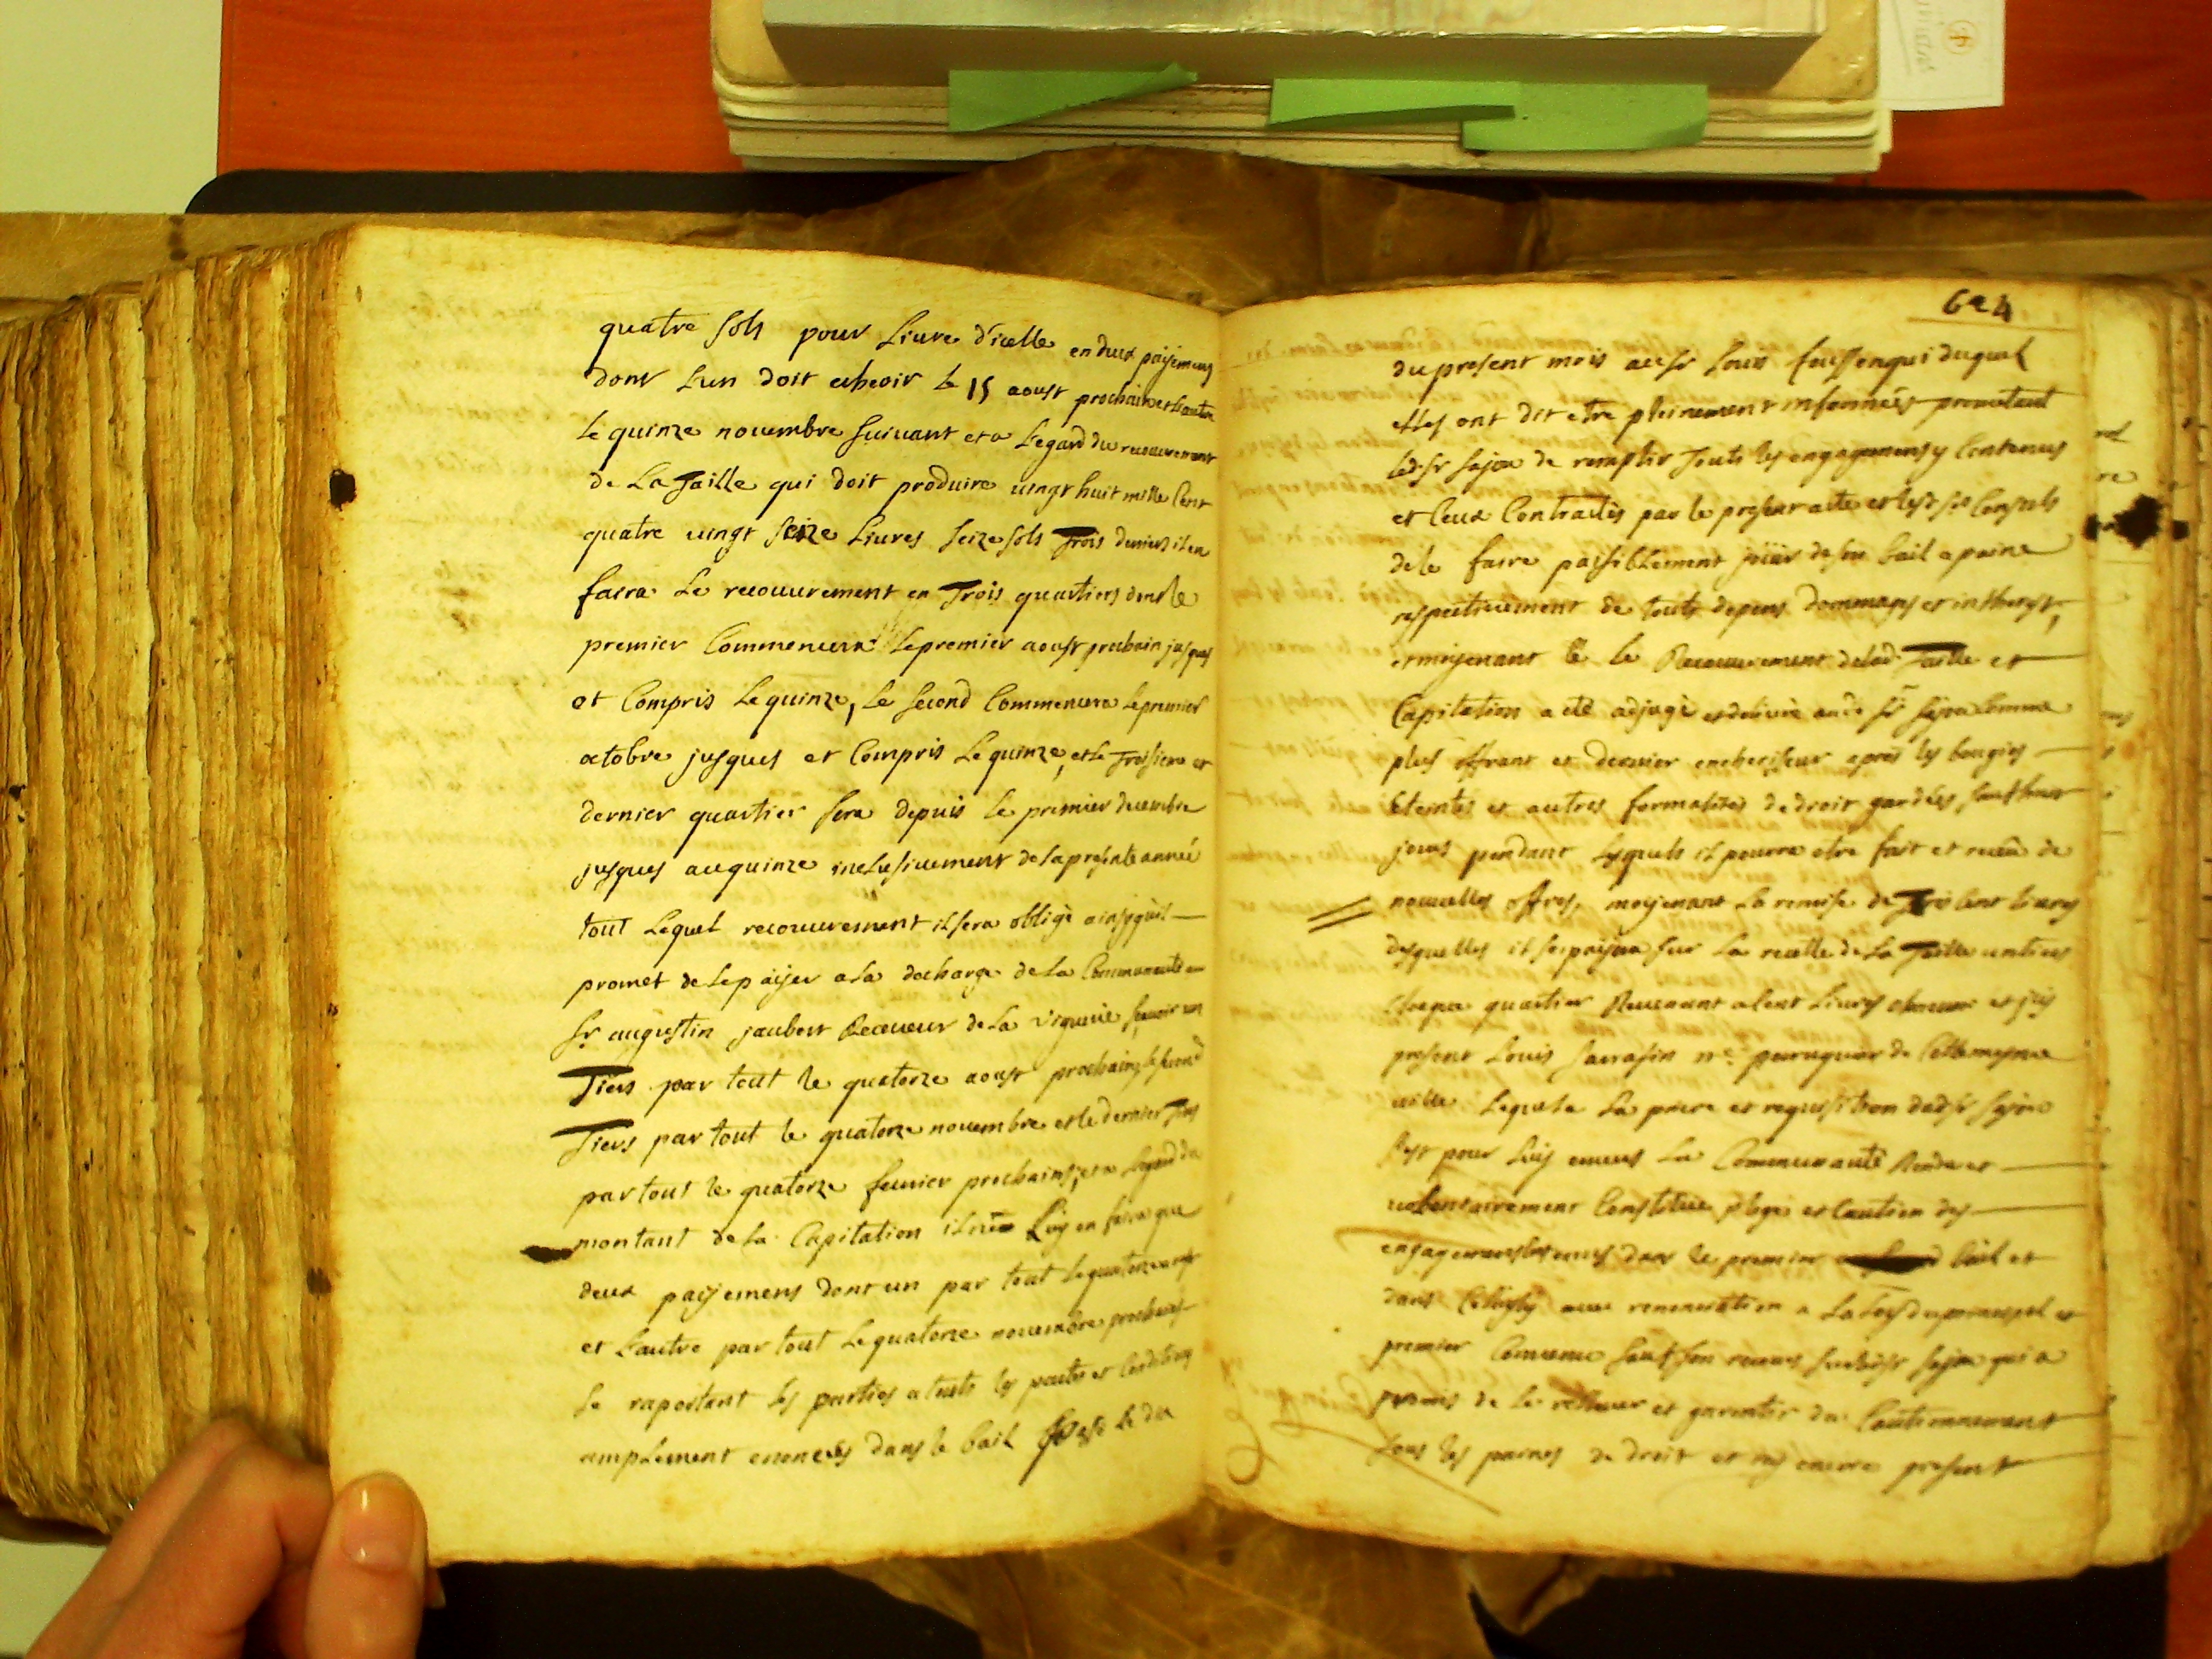 quatre sols pour Livre d'icelle en deux payemens
dont L'un doit echeoir le 15 aoust prochain et L'autre
le quinze novembre suivant et a L'egard du recouvrement
de La Taille qui doit produire vingt huit mille Cent
quatre vingt seize Livres seize sols Trois deniers il en
faira Le recouvrement en Trois quartiers dont le
premier Commencera le premier aoust prochain jusques
et Compris Le quinze, Le second Commencera le premier
octobre jusques et Compris Le quinze, et Le Troisieme et
dernier quartier sera depuis le premier decembre
jusques au quinze inclusivement de la presente année
tout Lequel recouvrement il sera obligé ainsy qu'il
promet de Le payer a La decharge de La Communauté au
Sr augustin jaubert Receveur de La viguerie scavoir un
Tiers par tout le quatorze aoust prochain, le second
Tiers par tout le quatorze novembre et le dernier Tiers
par tout le quatorze fevrier prochains, et a L'egard du
montant de La Capitation il Luy en faira que
deux payemens dont un par tout Le quatorze aoust
et L'autre par tout Le quatorze novembre prochains
se raportant les parties a touts les pactes et Conditions
amplement enoncées dans le bail passé le dix
624
du present mois au Sr Louis duquel
elles ont dit etre pleinement informées promettant
led. Sr de remplir Touts les engagemens y Contenus
et Ceux Contractés par le present acte et lesd. Srs Consuls
de le faire paisiblement joüir de son bail a peine
respectivement de touts depens dommages et interests,
et moyenant le Recouvrement de lad. Taille et
Capitation a eté adjugé et delivré aud. Sr Comme
plus offrant et dernier encherisseur après les bougies
eteintes et autres formalités de droit gardées, sauf huit
jours pendant lesquels il pourra etre fait et receu de
nouvelles offres, moyenant La remise de Trois Cent Livres
desquelles il se payera sur La recette de La Taille un tiers
Chaque quartier Revenant a Cent Livres et icy
present Louis Sarrasin me perruquier de Cette meme
ville Lequel a La priere et requisition dud. Sr
s'est pour Luy envers La Communauté Rendu et
volontairement Constitué plege et Caution des
engagemens Contenus dans le premier bail et
dans Celluycy avec renonciation a La Loy du principal et
premier Convenu sauf son recours sur led. Sr qui a
promis de le relever et garentir du Cautionnement
sous les peines de droit et icy encore present